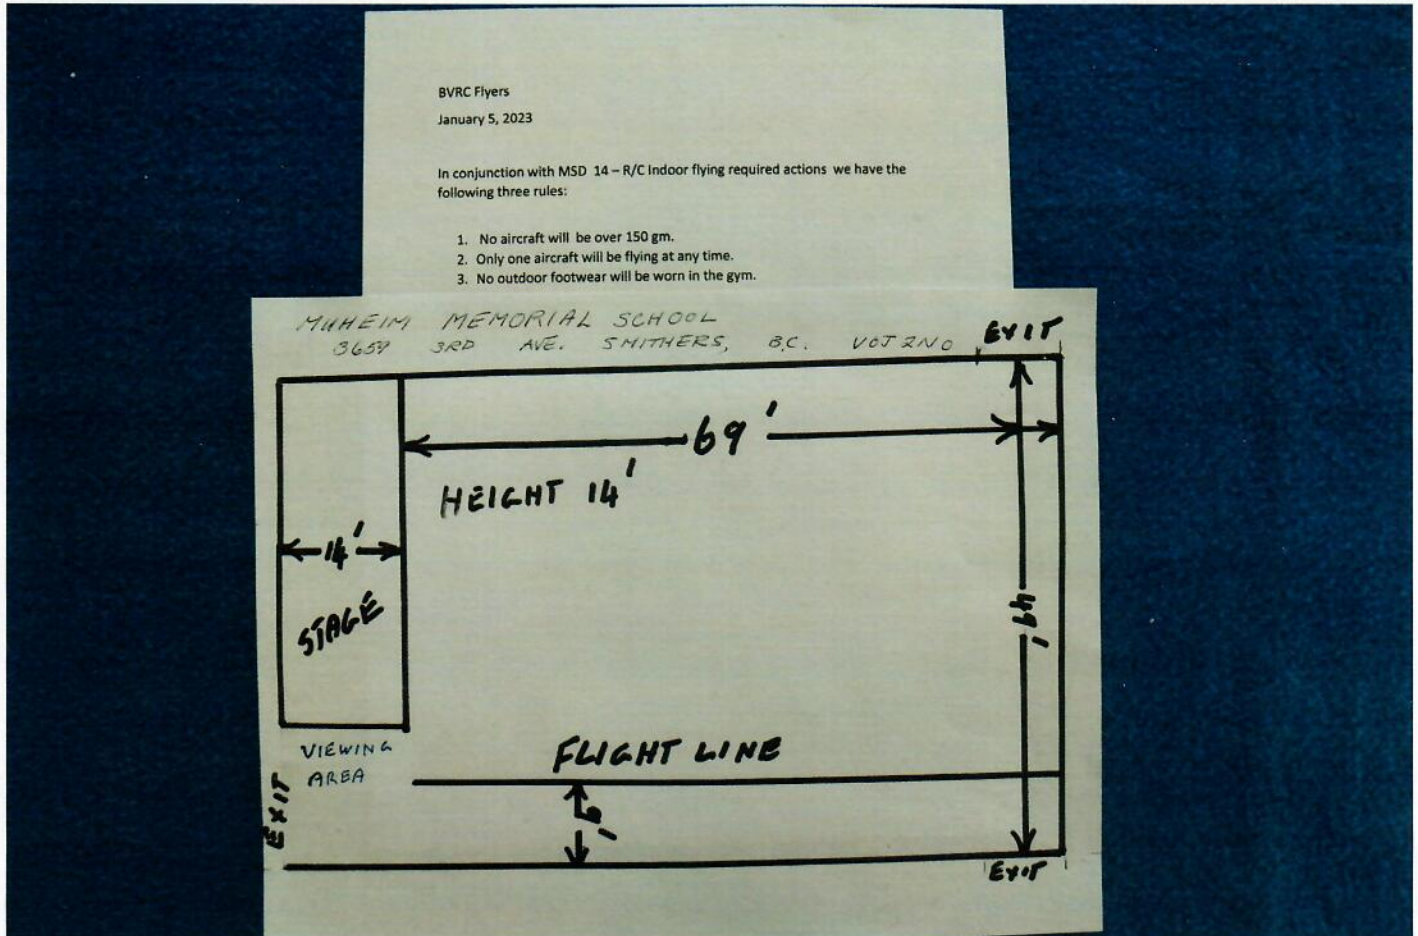 BVRC Flyers
January 5, 2023
In conjunction with MSD 14 – R/C Indoor flying required actions we have the
following three rules:
1. No aircraft will be over 150 gm.
2. Only one aircraft will be flying at any time.
3. No outdoor footwear will be worn in the gym.
MUHEIM MEMORIAL SCHOOL
3659 3RD AVE. SMITHERS, B.C. VOJ 2NO
EXIT
69'
HEIGHT 14'
14'
STAGE
49'
VIEWING
AREA
FLIGHT LINE
EXIT
9'
EXIT